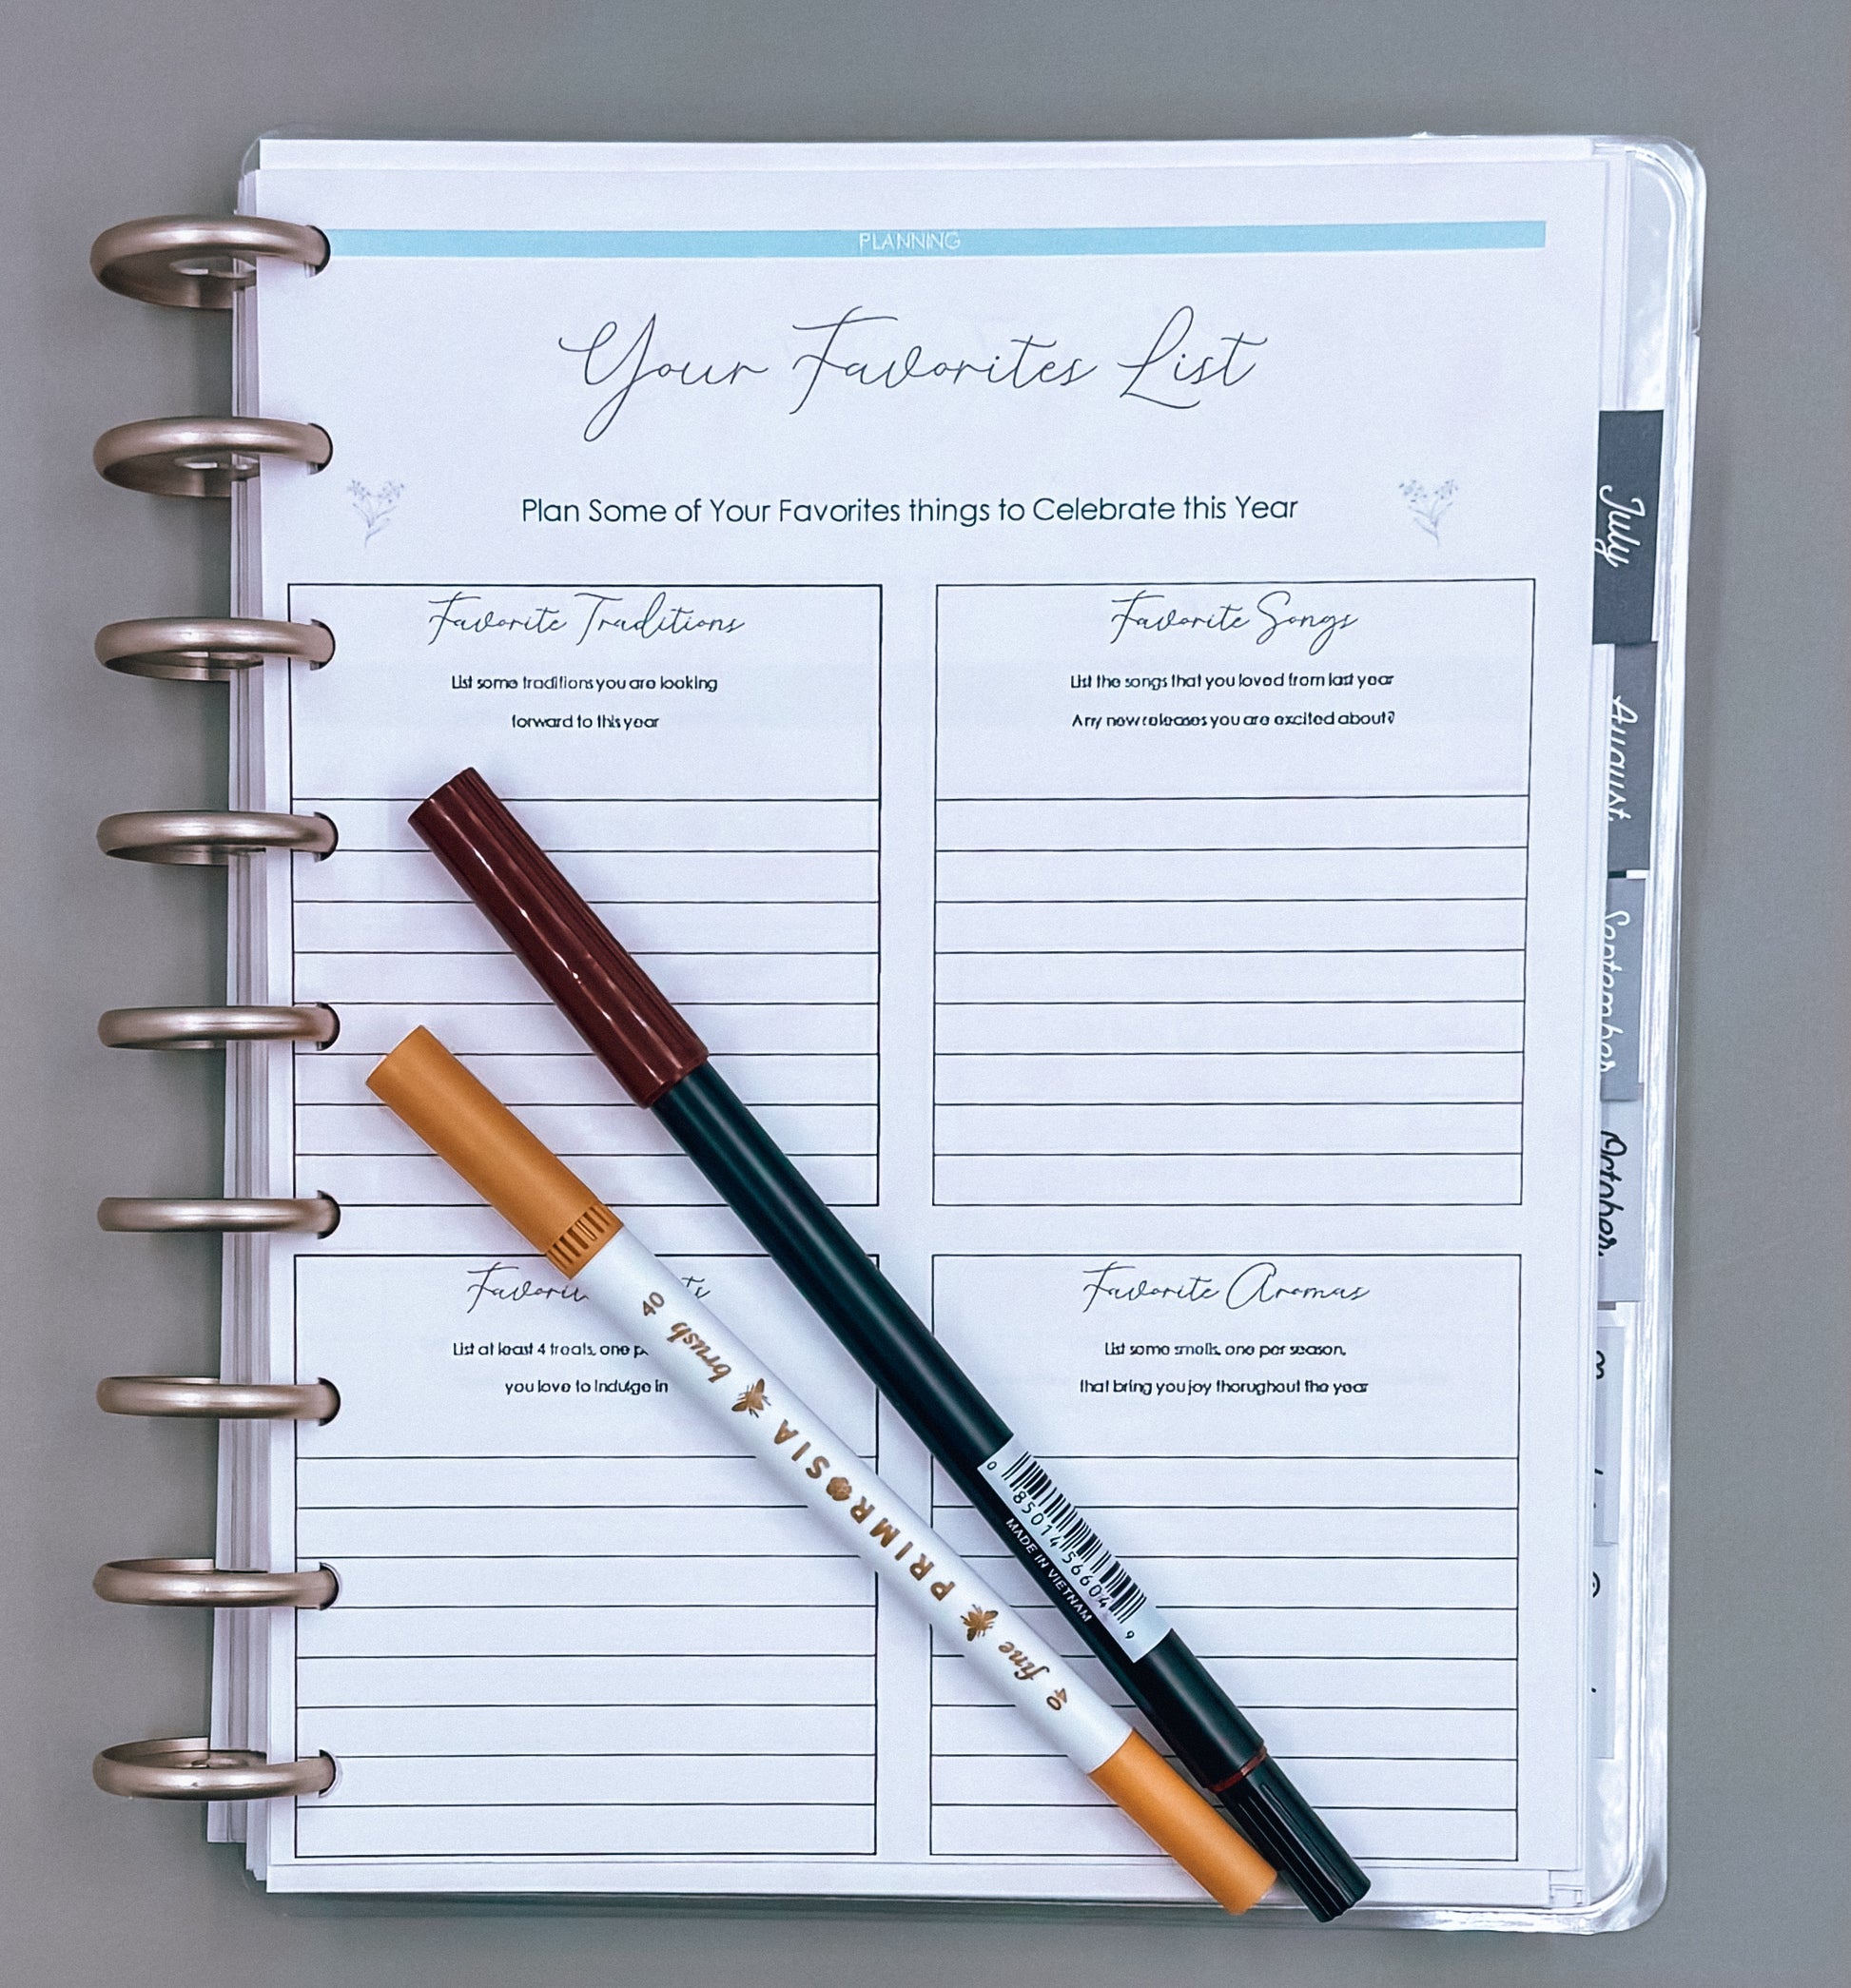 PLANNING
Your Favorites List
Plan Some of Your Favorites things to Celebrate this Year
Favorite Traditions
List some traditions you are looking
forward to this year
Favorite Songs
List the songs that you loved from last year
Any new releases you are excited about?
List at least 4 treats, one
you love to indulge in
Favorite Aromas
List some smells, one per season,
that bring you joy thorughout the year
40 brush PRIMROSIA fine 40
0 85014 56604 9
MADE IN VIETNAM
July
August
September
October